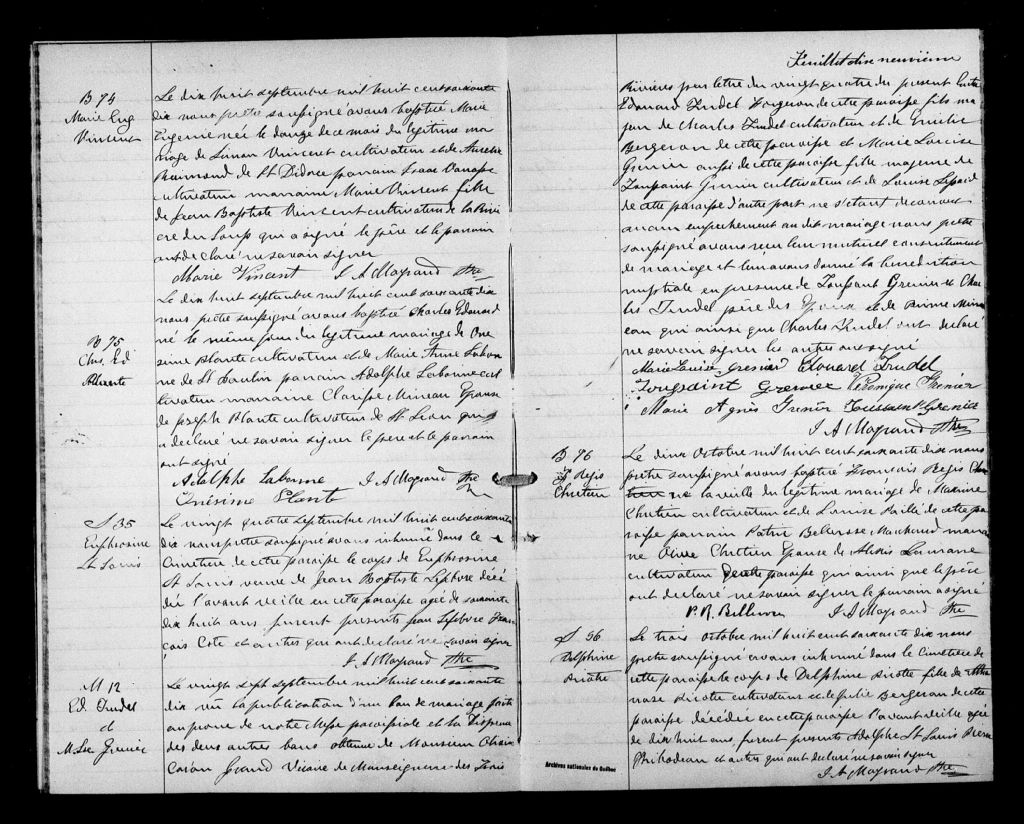 B 74
Marie Eug
Vincent
Le dix huit septembre mil huit cent soixante
dix nous prêtre soussigné avons baptisé Marie
Eugenie née le douze de ce mois du légitime ma
riage de Simon Vincent cultivateur et de Aurelie
Raimond de St Didace parrain Isaac
cultivateur marraine Marie Vincent fille
de Jean Baptiste Vincent cultivateur de la Rivi
ère du Loup qui a signé le père et le parrain
ont déclaré ne savoir signer
Marie Vincent J A Mayrand Ptre
B 75
Chs. Ed
Plante
Le dix huit septembre mil huit cent soixante dix
nous prêtre soussigné avons baptisé Charles Edouard
né le même jour du légitime mariage de One
sime Plante cultivateur et de Marie Anne Labon
ne de St Paulin parrain Adolphe Labonne cul
tivateur marraine Clarisse Mineau Epouse
de Joseph Plante cultivateur de St Leon qui
a déclaré ne savoir signer le père et le parrain
ont signé
Adolphe Labonne J A Mayrand Ptre
Onésime Plante
S 35
Euphrosine
St Louis
Le vingt quatre septembre mil huit cent soixante
dix nous prêtre soussigné avons inhumé dans le
Cimetière de cette paroisse le corps de Euphrosine
St Louis veuve de Jean Baptiste Lefebvre décé
dée l'avant veille en cette paroisse agée de soixante
dix huit ans furent présents Jean Lefebvre Fran
çois Coté et autres qui ont declaré ne savoir signer
J A Mayrand Ptre
M 12
Ed. Trudel
et
M. Lse Grenier
Le vingt sept septembre mil huit cent soixante
dix vu la publication d'un ban de mariage faite
au prone de notre Messe paroissiale et la Dispense
des deux autres bans obtenue de Monsieur
Caron Grand Vicaire de Monseigneur des Trois
Archives nationales du Québec
Feuillet dix neuvième
Rivières par lettre du vingt quatre du présent Entre
Edouard Trudel Forgeron de cette paroisse fils ma
jeur de Charles Trudel cultivateur et de Emelie
Bergeron de cette paroisse et Marie Louise
Grenier aussi de cette paroisse fille majeure de
Toussaint Grenier cultivateur et de Louise
de cette paroisse d'autre part ne s'étant découvert
aucun empêchement au dit mariage nous prêtre
soussigné avons reçu leur mutuel consentement
de mariage et leur avons donné la bénédiction
nuptiale en présence de Toussaint Grenier et Char
les Trudel père des Epoux et de Mine
au qui ainsi que Charles Trudel ont déclaré
ne savoir signer les autres ont signé
Marie Louise Grenier Edouard Trudel
Toussaint Grenier Véronique Grenier
Marie Agnès Grenier Toussaint Grenier
J A Mayrand Ptre
B 76
F. Régis
Chretien
Le deux Octobre mil huit cent soixante dix nous
prêtre soussigné avons baptisé François Régis
né la veille du légitime mariage de Maxime
Chretien cultivateur et de Louise Paillé de cette pa
roisse parrain Marchand marrai
ne Olive Chretien Epouse de Alexis
cultivateur de cette paroisse qui ainsi que le père
ont declaré ne savoir signer le parrain a signé
J A Mayrand Ptre
S 36
Delphine
Le trois Octobre mil huit cent soixante dix nous
prêtre soussigné avons inhumé dans le Cimetière de
cette paroisse le corps de Delphine fille de Atha
nase cultivateur et de Julie Bergeron de cette
paroisse décédée en cette paroisse l'avant veille agée
de dix huit ans, furent présents Adolphe St Louis Pierre
Thibodeau et autres qui ont declaré ne savoir signer
J A Mayrand Ptre